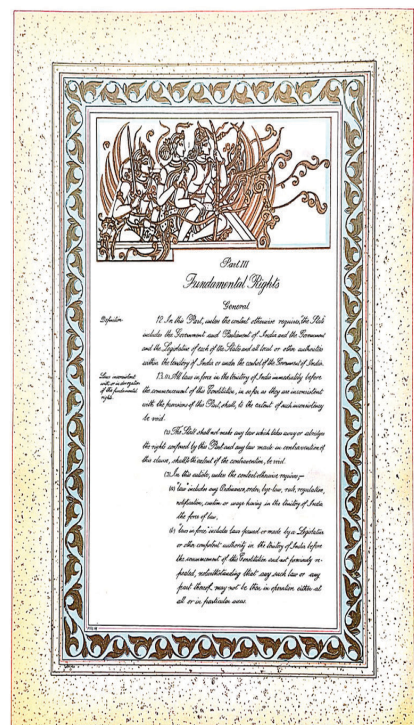 Part III
Fundamental Rights
General
Definition.
12. In this Part, unless the context otherwise requires, "the State"
includes the Government and Parliament of India and the Government
and the Legislature of each of the States and all local or other authorities
within the territory of India or under the control of the Government of India.
Laws inconsistent
with or in derogation
of the fundamental
rights.
13. (1) All laws in force in the territory of India immediately before
the commencement of this Constitution, in so far as they are inconsistent
with the provisions of this Part, shall, to the extent of such inconsistency,
be void.
(2) The State shall not make any law which takes away or abridges
the right conferred by this Part and any law made in contravention of
this clause, shall, to the extent of the contravention, be void.
(3) In this article, unless the context otherwise requires,—
(a) "law" includes any Ordinance, order, bye-law, rule, regulation,
notification, custom or usage having in the territory of India
the force of law;
(b) "laws in force" includes laws passed or made by a Legislature
or other competent authority in the territory of India before
the commencement of this Constitution and not previously re-
pealed, notwithstanding that any such law or any
part thereof may not be then in operation either at
all or in particular areas.